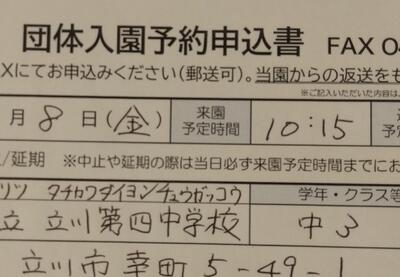 団体入園予約申込書 FAX 04
Xにてお申込みください(郵送可)。当園からの返送をも
※ご記入いただいた内容は、
月 8 日(金) 来園予定時間 10:15
/延期 ※中止や延期の際は当日必ず来園予定時間までにお
リツ タチカワダイヨンチュウガッコウ 学年・クラス等
立 立川第四中学校 中3
立川市幸町 5-49-1